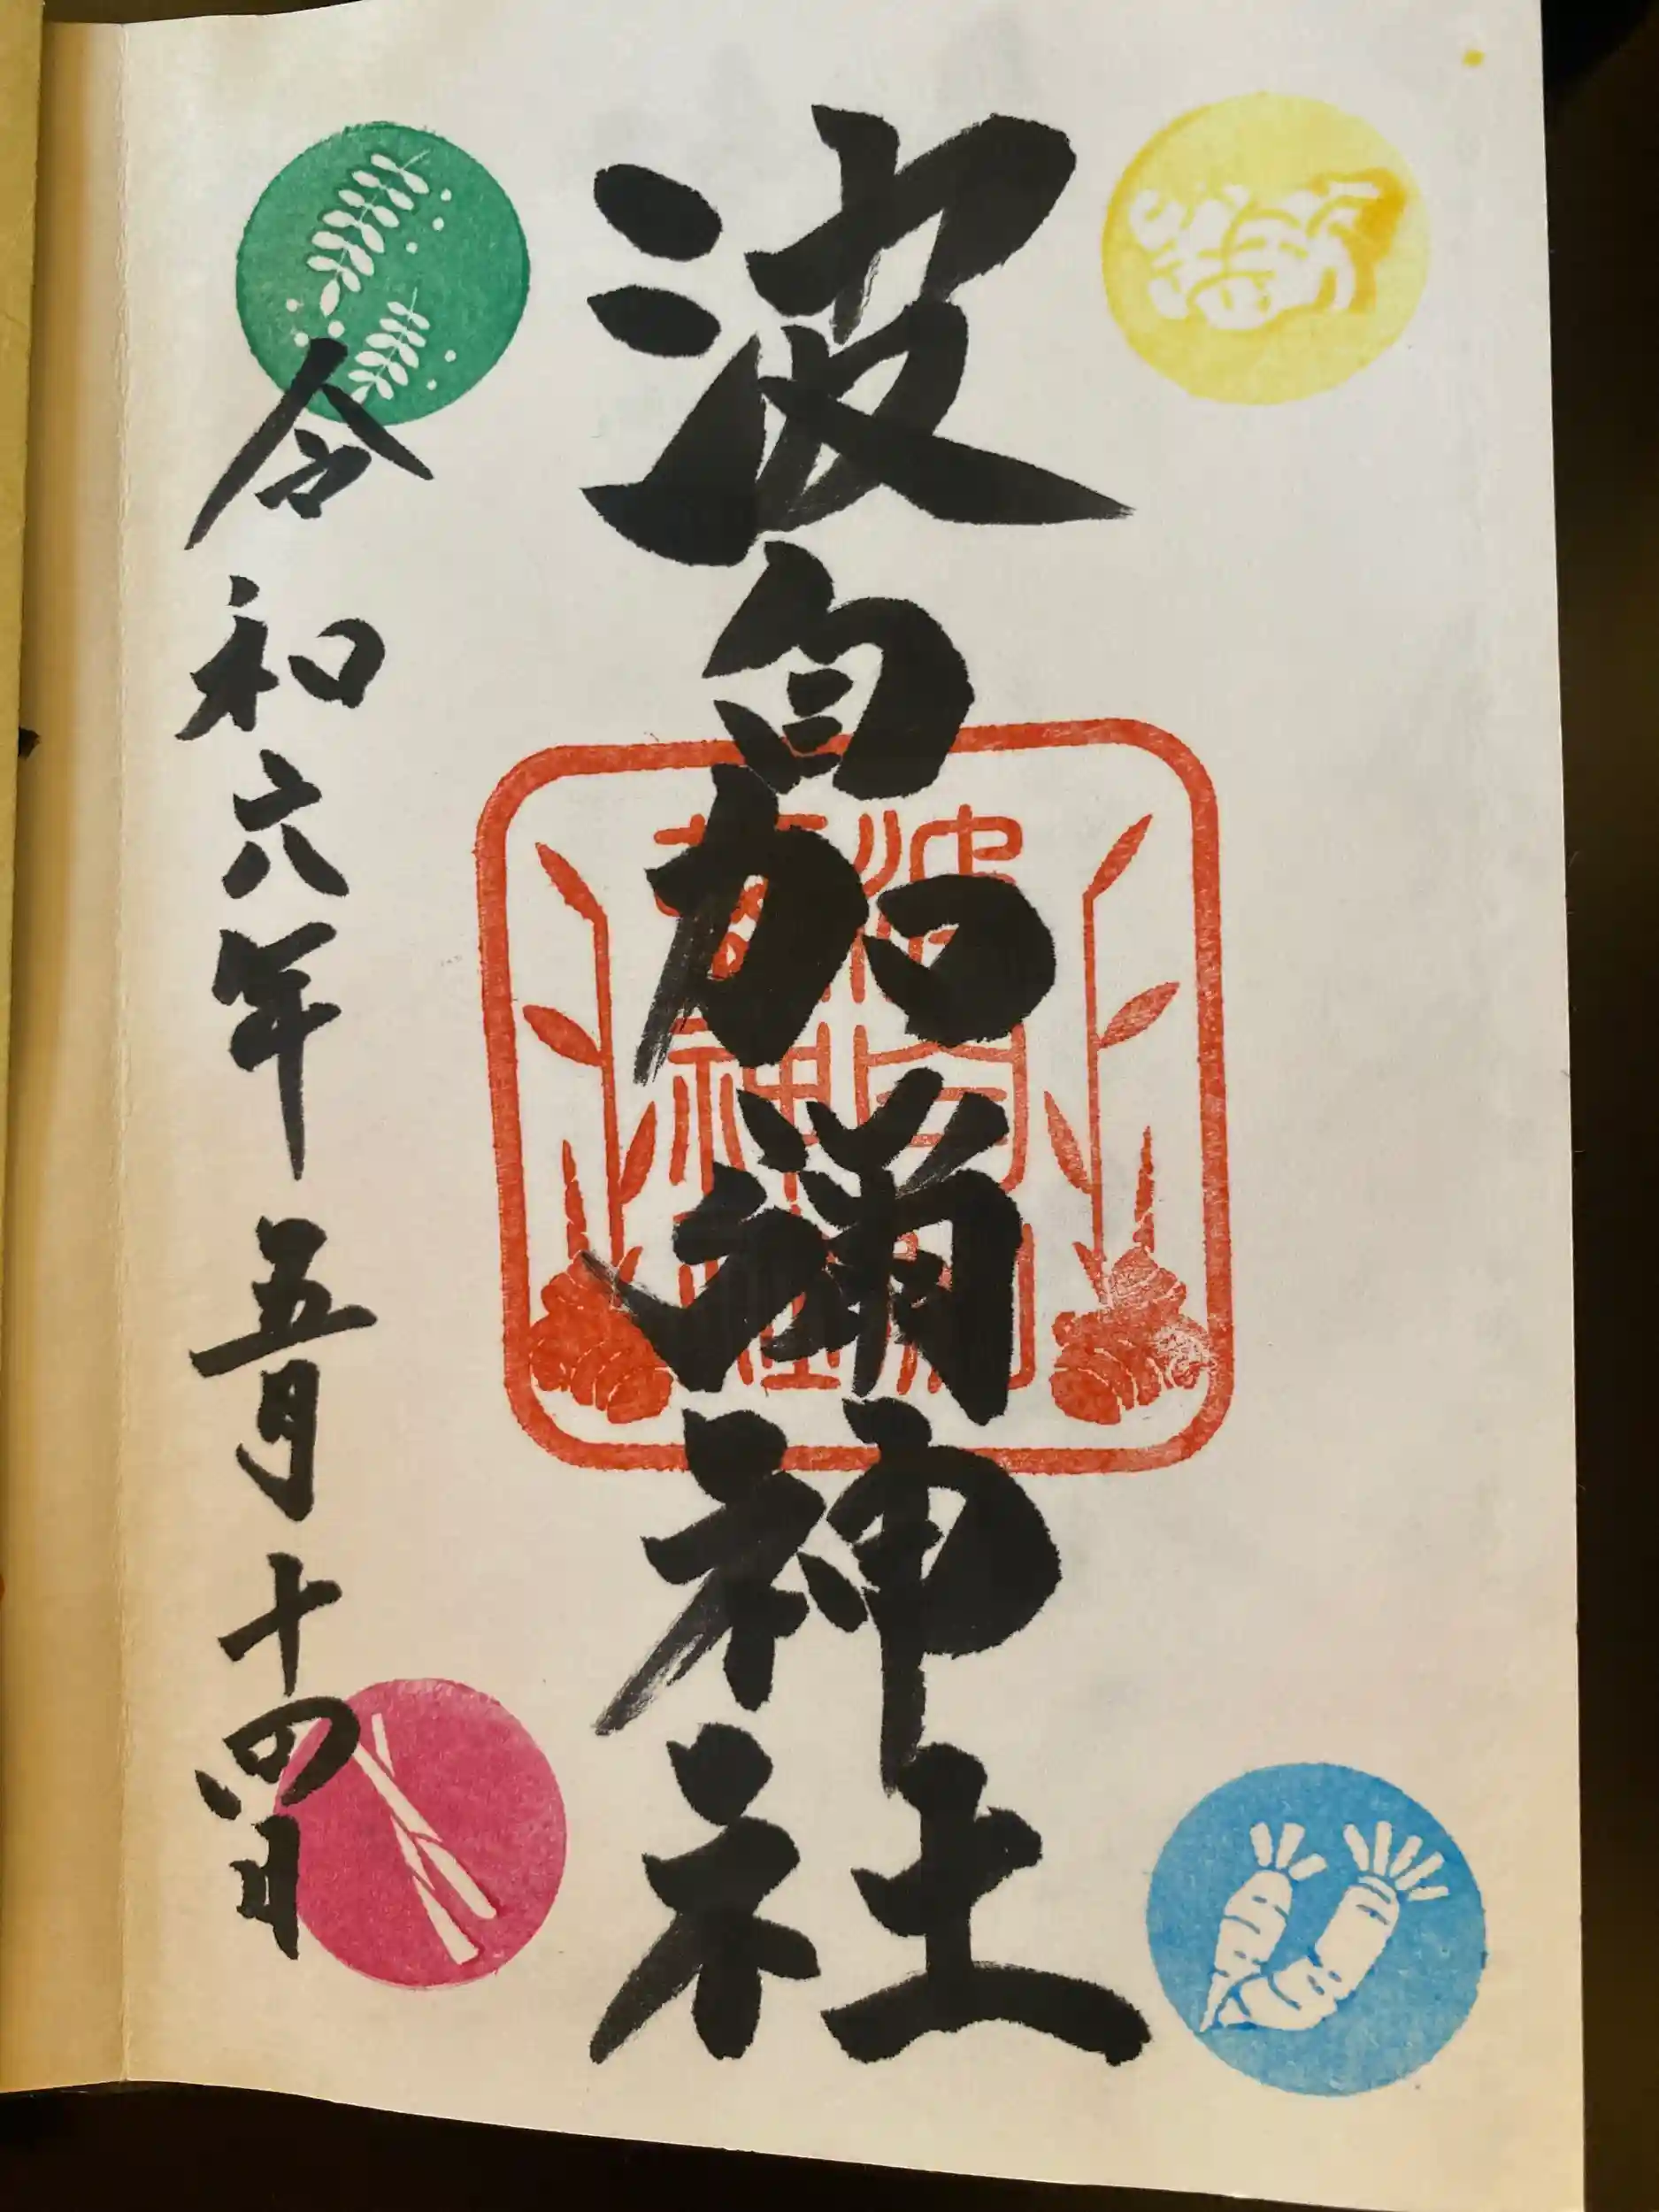 波自加彌神社
令和六年五月十四日